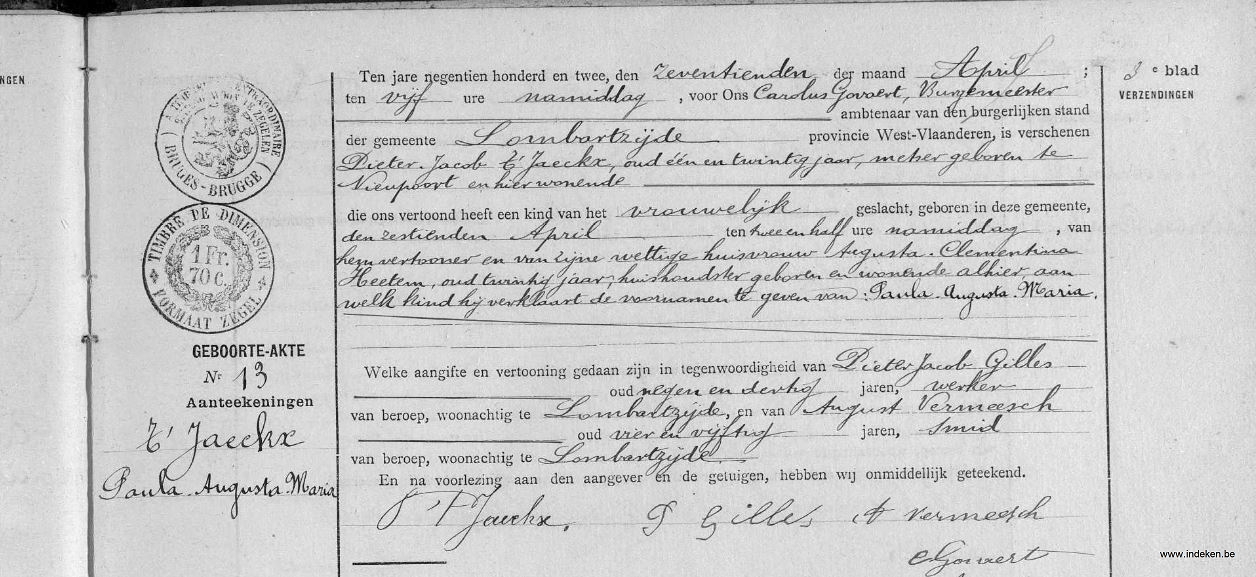 NGEN
BRUGES-BRUGGE
TIMBRE DE DIMENSION
1 Fr.
70 C.
FORMAAT ZEGEL
GEBOORTE-AKTE
Nr 13
Aanteekeningen
T' Jaeckx
Paula. Augusta. Maria
Ten jare negentien honderd en twee, den zeventienden der maand April ;
ten vijf ure namiddag , voor Ons Carolus Govaert, Burgemeester
ambtenaar van den burgerlijken stand
der gemeente Lombartzijde provincie West-Vlaanderen, is verschenen
Pieter. Jacob T' Jaeckx, oud één en twintig jaar, metser geboren te
Nieupoort en hier wonende
die ons vertoond heeft een kind van het vrouwelijk geslacht, geboren in deze gemeente,
den zestienden April ten twee en half ure namiddag , van
hem vertooner en van zijne wettige huisvrouw Augusta. Clementina
Heetem, oud twintig jaar, huishoudster geboren en wonende alhier, aan
welk kind hij verklaart de voornamen te geven van : Paula. Augusta. Maria.
Welke aangifte en vertooning gedaan zijn in tegenwoordigheid van Pieter Jacob Gilles
oud negen en dertig jaren, werker
van beroep, woonachtig te Lombartzijde, en van August Vermeesch
oud vier en vijftig jaren, smid
van beroep, woonachtig te Lombartzijde.
En na voorlezing aan den aangever en de getuigen, hebben wij onmiddellijk geteekend.
P T'Jaeckx. P Gilles A Vermeesch
C Govaert
3e blad
VERZENDINGEN
www.indeken.be